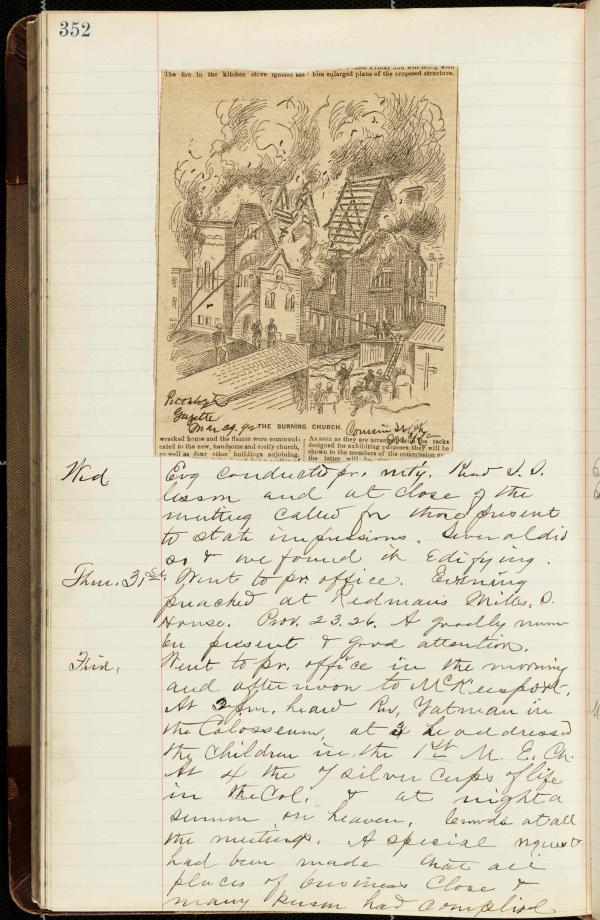 352
The fire in the kitchen stove ignited the
him enlarged plans of the proposed structure.
Gazette
Mar 29. 92
THE BURNING CHURCH.
wrecked house and the flames were communi-
cated to the new, handsome and costly church,
as well as four other buildings adjoining.
As soon as they are arranged from the racks
designed for exhibiting purposes they will be
shown to the members of the commission
the latter will be
Wed Evg conducted pr. mtg. Read S. S.
lesson and at close of the
meeting called for those present
to state impressions. Several did
so & we found it Edifying.
Thur. 31st. Went to pr. office. Evening
preached at Redman's Mills, S.
House. Prov. 23.26. A goodly num
ber present & good attention.
Frid. Went to pr. office in the morning
and afternoon to McKeesport.
At 2 pm. heard Rev. Yatman in
the Colosseum, at 3 he addressed
the children in the 1st M. E. Ch.
At 4 the 7 silver cups of life
in the Col. & at night a
sermon on heaven. Crowds at all
the meetings. A special request
had been made that all
places of business close &
many had complied